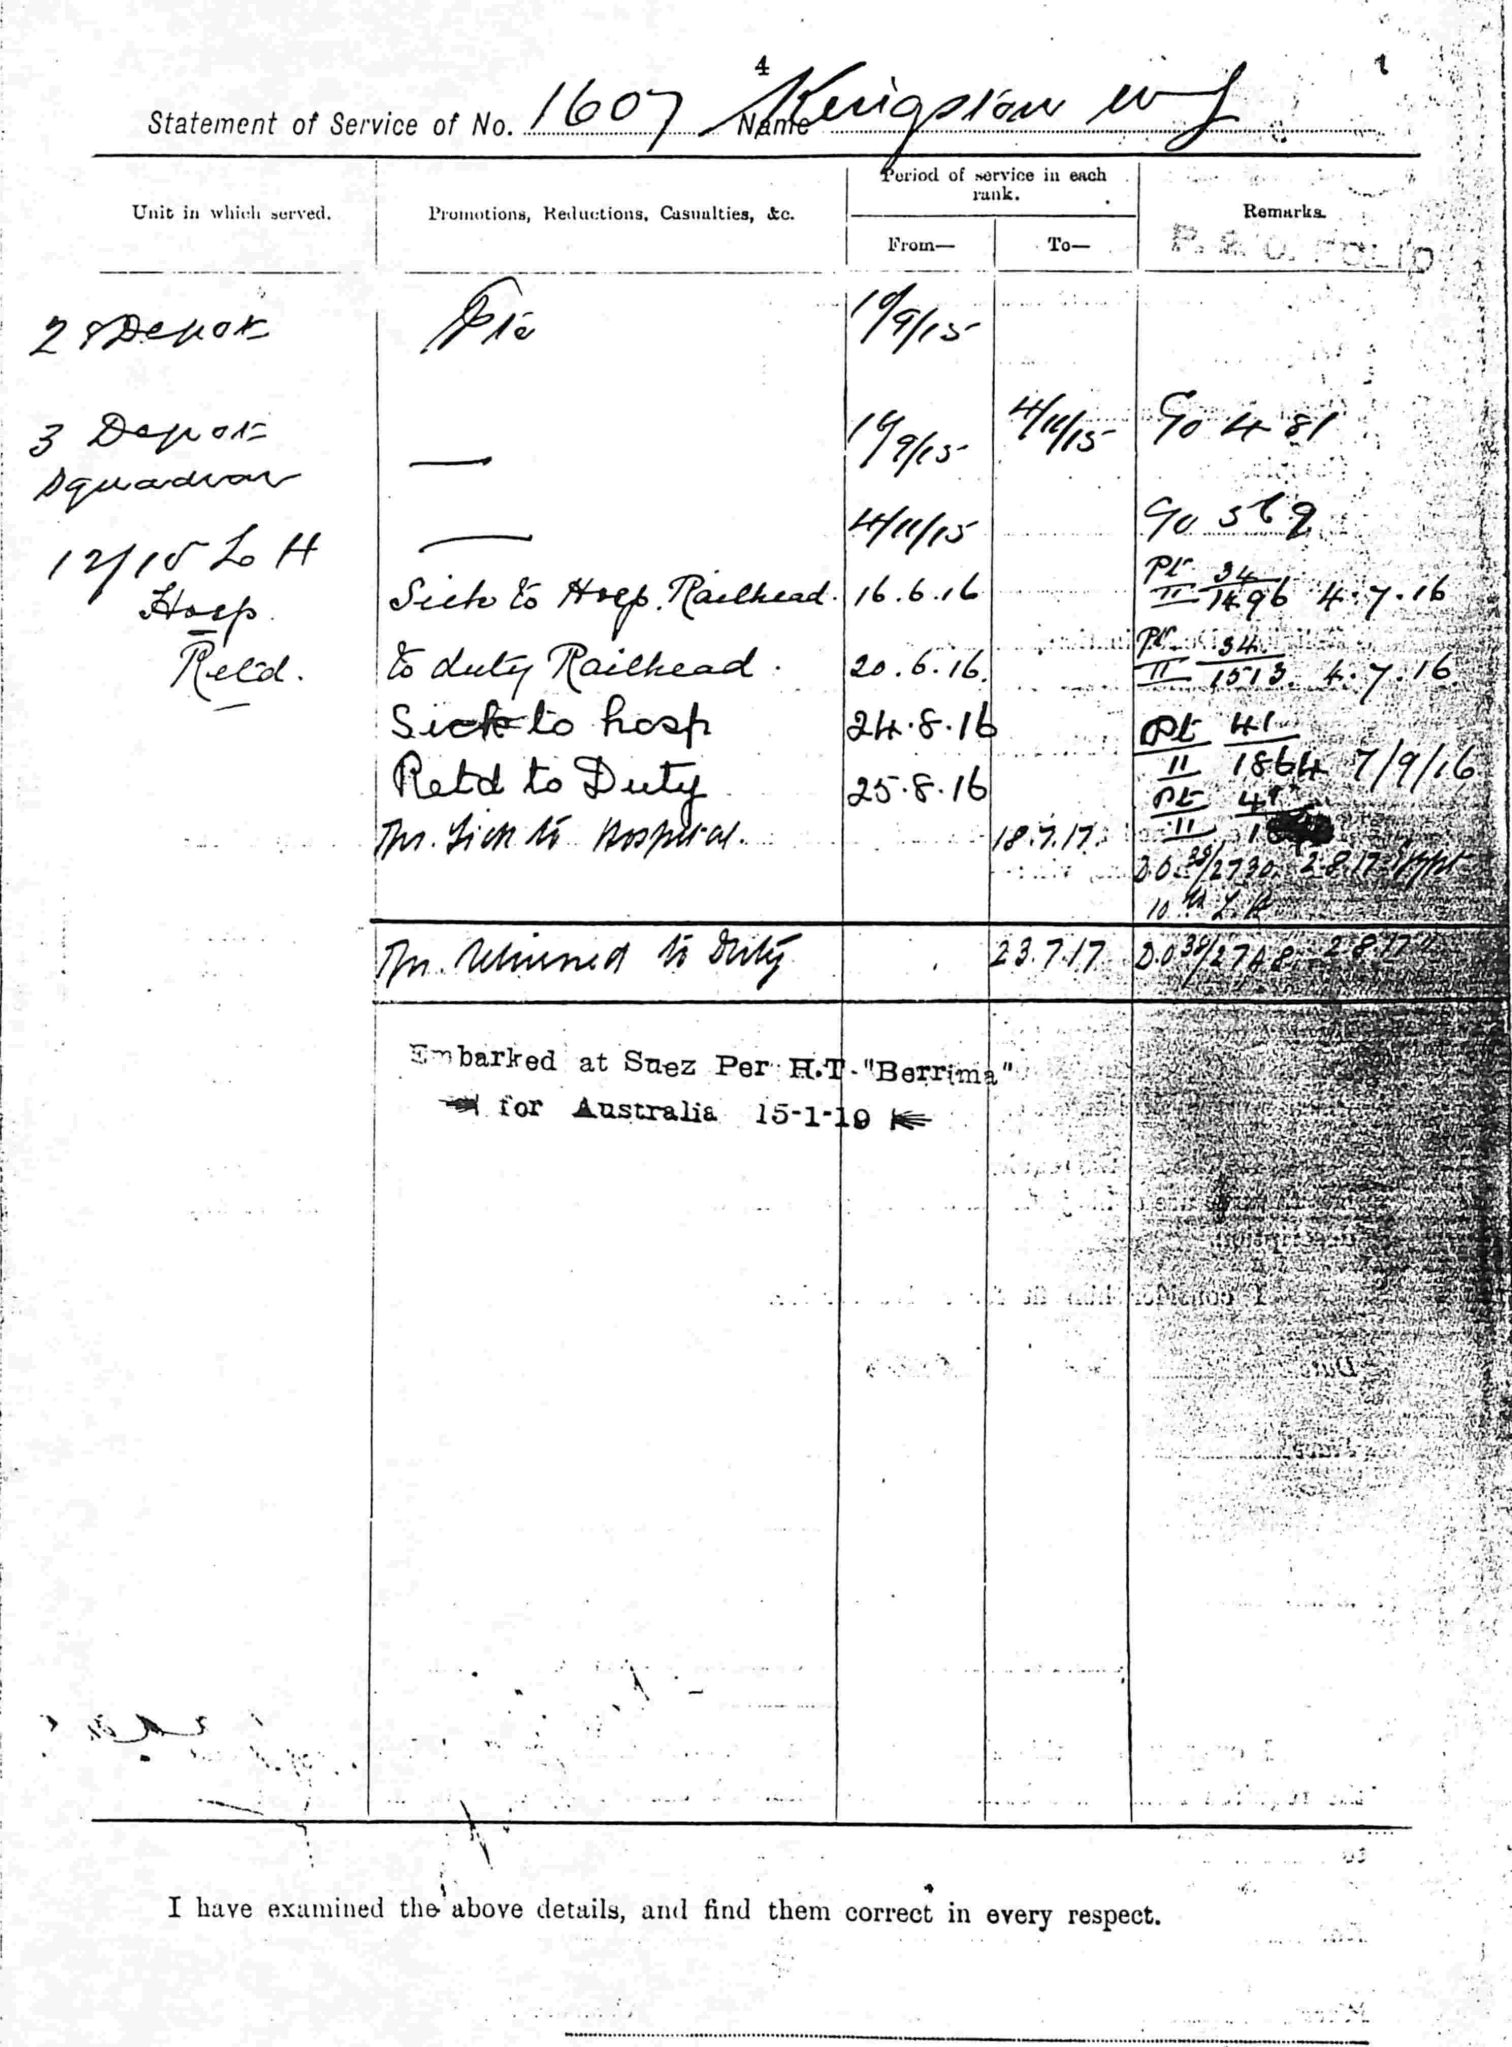 4
Statement of Service of No. 1607 Name Kingston W J
Unit in which served.
Promotions, Reductions, Casualties, &c.
Period of service in each rank.
From—
To—
Remarks.
P. & O. FOLIO
28 Depot Pte 10/9/15
3 Depot Squadron — 10/9/15 4/11/15 Go 481
12/15 L H — 4/11/15 Go
Hosp. Sick to Hosp. Railhead. 16.6.16 Pt II 34/1496 4.7.16
Retd. to duty Railhead. 20.6.16. Pt II 34/1513. 4.7.16
Sick to hosp 24.8.16 Pt II 41/1864 7/9/16
Retd to Duty 25.8.16 Pt II
Tpr. Sick to Hospital. 18.7.17. D.O. 38/2730. 2.8.17
10th L.H.
Tpr. returned to Duty 23.7.17 D.O 38/2748. 2.8.17
Embarked at Suez Per H.T. "Berrima"
for Australia 15-1-19
I have examined the above details, and find them correct in every respect.